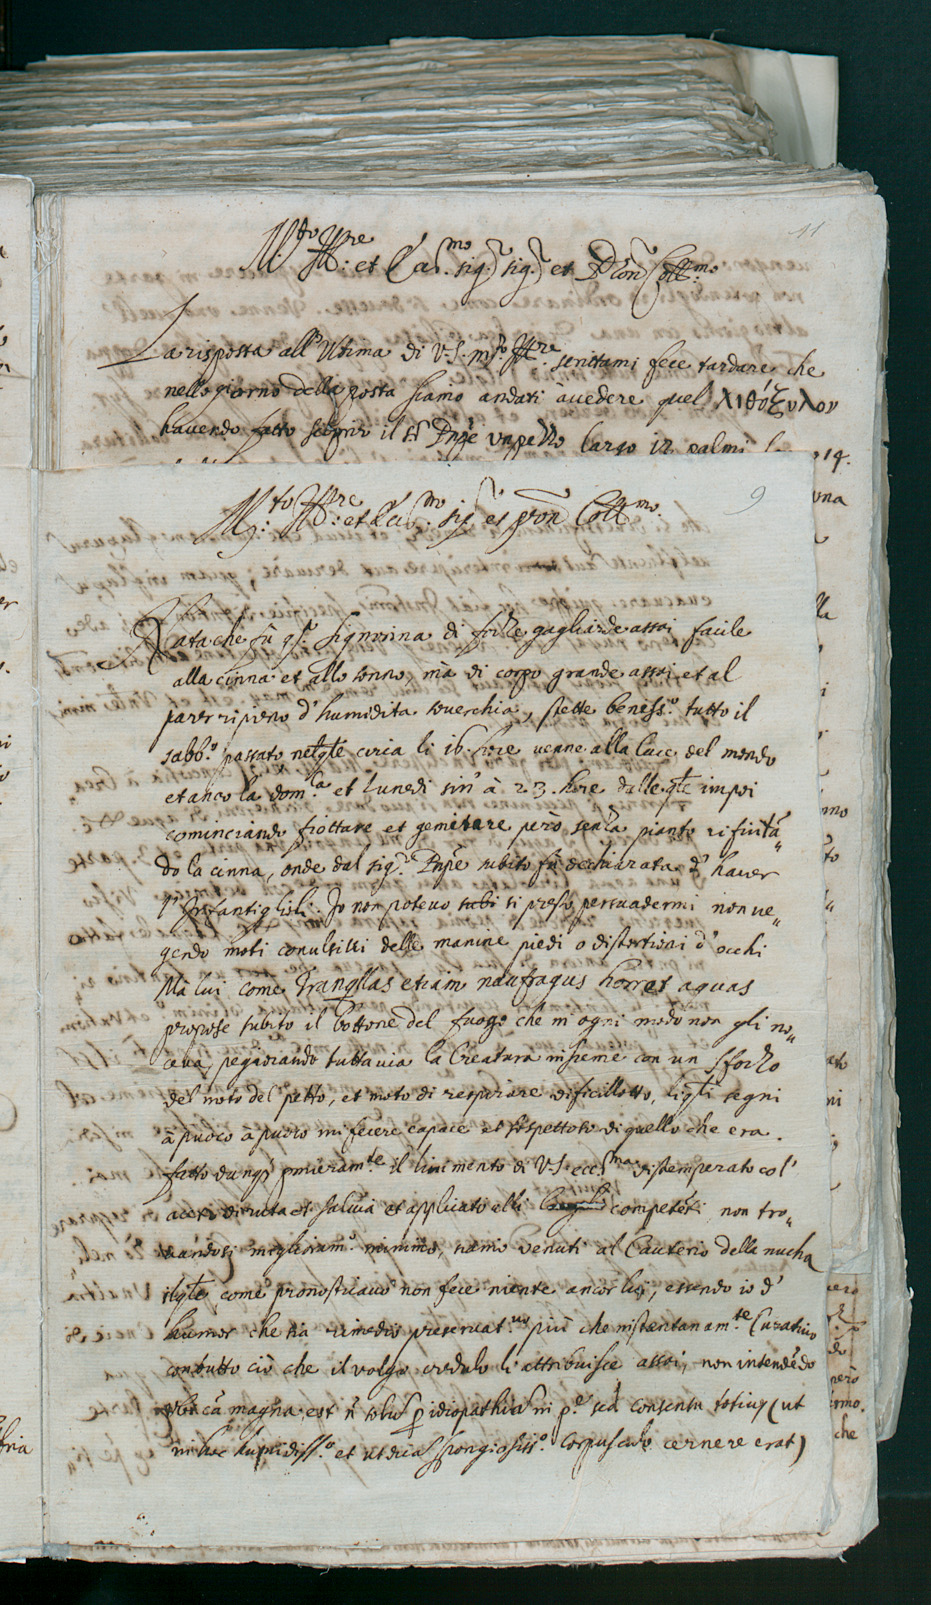 11
M.to Ill.re et Ecc.mo sig.r sig.r et P.ron Coll.mo
La risposta all'Ultima di V.S. m.to Ill.re scrittami fece tardare che
nello giorno della posta siamo andati à vedere quel λιθόξυλον
havendo fatto scoprir il S.r Pnpe un pezzo largo 12 palmi 14.
una
9
M.to Ill.re et Ecc.mo sig.r et pron Coll.mo
Nata che fù q.sta Signorina di forze gagliarde assai facile
alla cinna et allo sonno, mà di corpo grande assai et al
parer ripieno d'humidita soverchia, stette beness.o tutto il
sabb.o passato nel qle circa li 16. hore venne alla luce del mondo
et anco la dom.ca et Lunedi sin' à 23. hore dalle qli impoi
cominciando fiottare et gemitare però senza pianto rifiutā„
do la cinna, onde dal sig.r Pnpe subito fù dechiarata d'haver
l'Infantiglioli. Io non potevo subi si presto persuadermi non ve„
gendo moti convulsivi delle manine piedi o distortioni d'occhi
Mà lui come tranqllas etiam naufragus horret aquas
propose subito il bottone del fuogo che in ogni modo non gli no„
ceva, pegiorando tuttavia la Creatura insieme con un sforzo
del moto del petto, et moto di respirare dificillotto, li qli segni
à puoco à puoco mi fecere capace et sospettoso di quello che era.
fatto dunq primieram.te il linimento di VS ecc.ma distemperato col'
aceto di ruta et salvia et applicato alli competēti non tro„
vandosi miglioram.o minimo, siamo venuti al Cauterio della nucha
il qle come pronosticavo non fece niente ancor lui, essendo io d'
humor che sia rimedio preservat.vo più che instantanam.te Curativo
con tutto ciò che il volgo credulo li attribuisce assai, non intendēdo
ubi cā magna est nō solū p idiopathiā in p.e sed consensu totius (ut
in hoc humidiss.o et ut dicā spongiosiss.o corpusculo cernere erat)